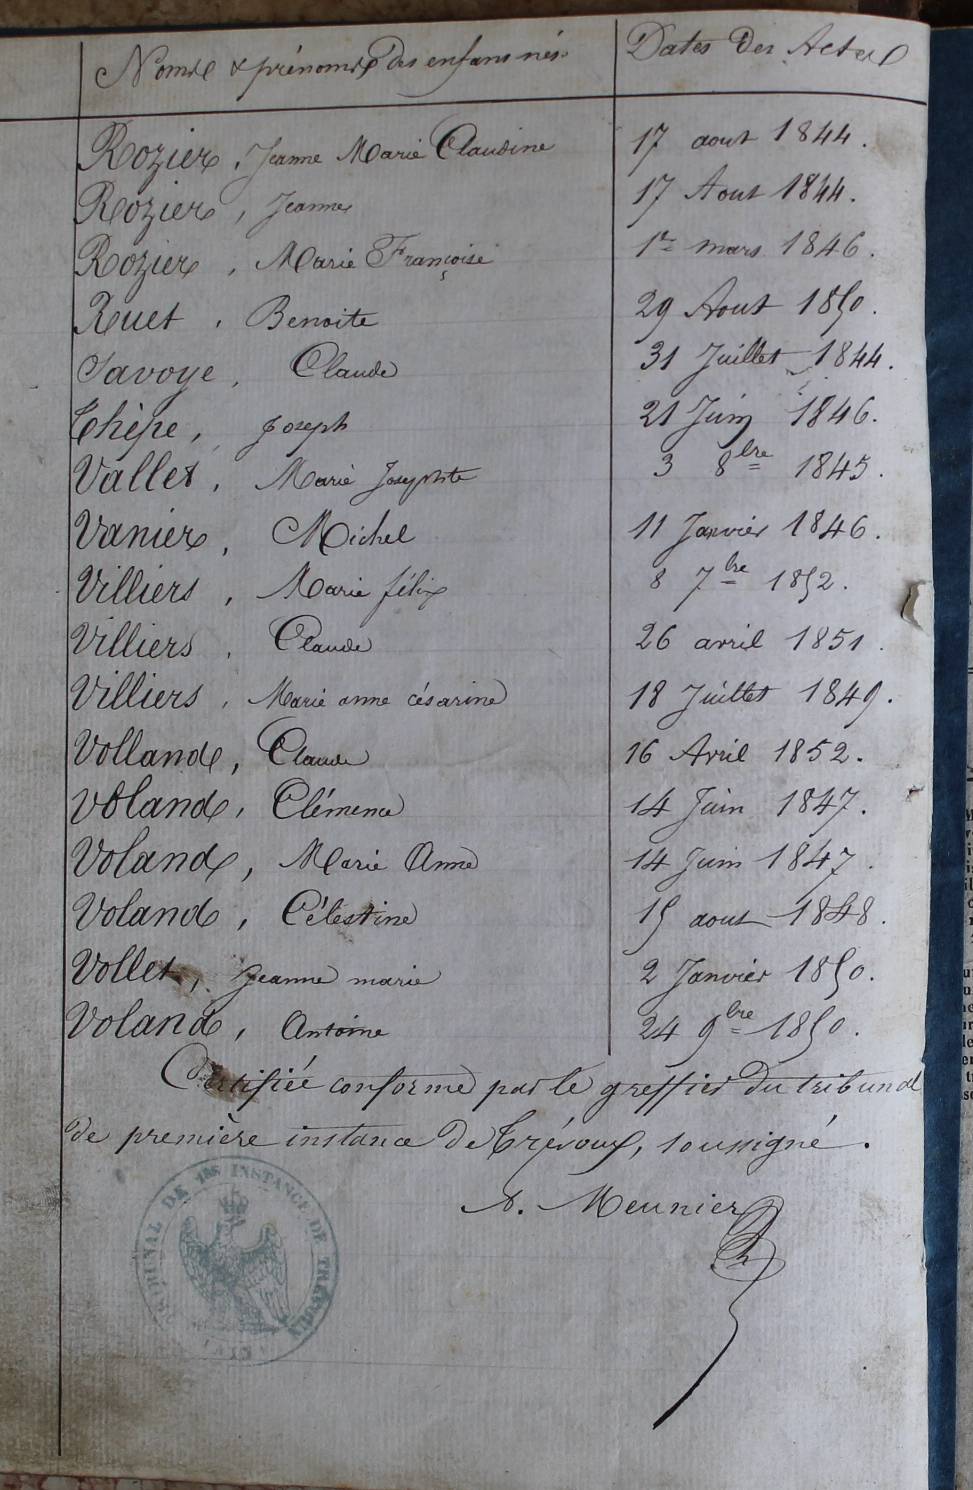 Noms & prénoms des enfans nés. Dates des Actes
Rozier, Jeanne Marie Claudine 17 aout 1844.
Rozier, Jeanne 17 Aout 1844.
Rozier, Marie Françoise 1er mars 1846.
Ruet, Benoite 29 Aout 1850.
Savoye, Claude 31 Juillet 1844.
Thèpe, Joseph 21 Juin 1846.
Vallet, Marie Josephte 3 8bre 1845.
Vanier, Michel 11 Janvier 1846.
Villiers, Marie félix 8 7bre 1852.
Villiers, Claude 26 avril 1851.
Villiers, Marie anne césarine 18 Juillet 1849.
Volland, Claude 16 Avril 1852.
Voland, Clémence 14 Juin 1847.
Voland, Marie Anne 14 Juin 1847.
Voland, Célestine 15 aout 1848.
Vollet, Jeanne marie 2 Janvier 1850.
Voland, Antoine 24 9bre 1850.
Certifiée conforme par le greffier du tribunal
de première instance de Trévoux, soussigné.
A. Meunier
TRIBUNAL DE 1RE INSTANCE DE TREVOUX